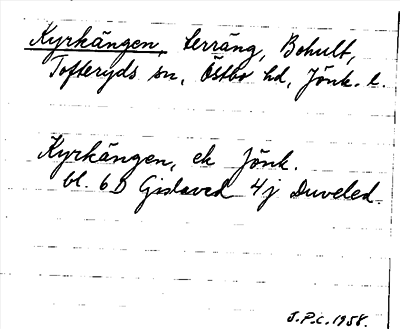 Kyrkängen, terräng, Bohult,
Tofteryds sn, Östbo hd, Jönk. l.
Kyrkängen, ek Jönk.
bl. 6D Gislaved 4j Duveled.
J.P.C. 1958.